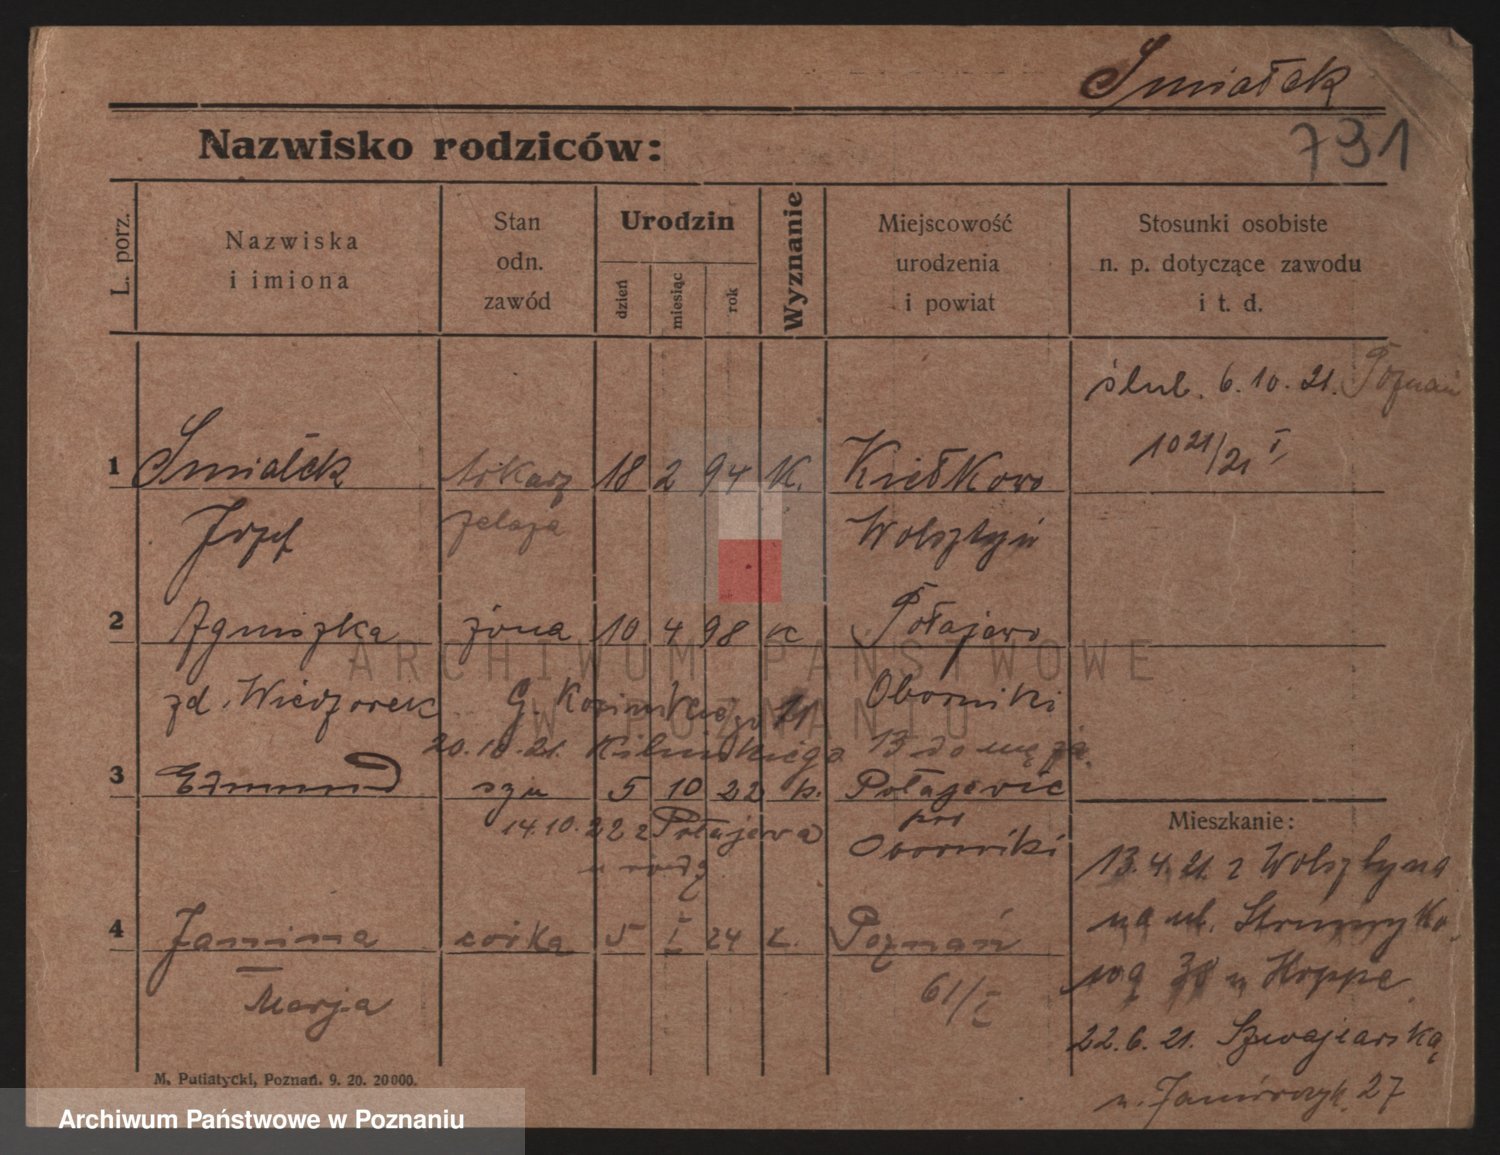 Śmiałek
731
Nazwisko rodziców:
L. porz.
Nazwiska
i imiona
Stan
odn.
zawód
Urodzin
dzień
miesiąc
rok
Wyznanie
Miejscowość
urodzenia
i powiat
Stosunki osobiste
n. p. dotyczące zawodu
i t. d.
ślub. 6. 10. 21. Poznań
1021/21 I
1 Śmiałek tokarz 18 2 94 K. Kiełkowo
Józef żelaza Wolsztyn
2 Agniszka żona 10 4 98 K Połajewo
zd. Wieczorek Oborniki
20. 10. 21. 13 do męża
3 Edmund syn 5 10 22 k. Połajewie
14. 10. 22 z Połajewa pow
Oborniki
4 Janina córka 5 I 24 k. Poznań
Marja 61/I
Mieszkanie:
13. 4. 21. z Wolsztyna
na ul. Strumyko
wą 38 u Hoppe
22. 6. 21. Szwajcarską
27
M. Putiatycki, Poznań. 9. 20. 20000.
ARCHIWUM PAŃSTWOWE
W POZNANIU
Archiwum Państwowe w Poznaniu